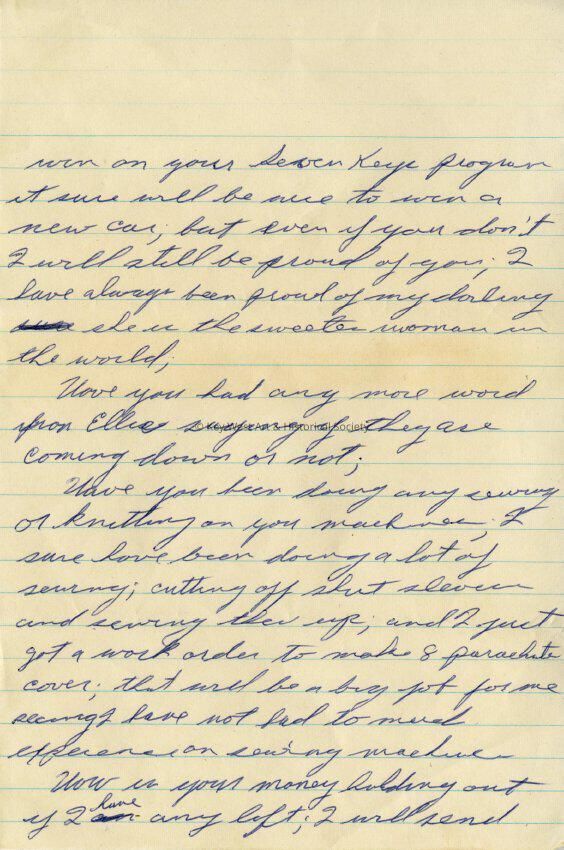 win on your Seven Keys program
it sure will be nice to win a
new car; but even if you don't
I will still be proud of you; I
have always been proud of my darling
she is the sweetes woman in
the world;
Have you had any more word
from Ellie saying if they are
© Key West Art & Historical Society
coming down or not;
Have you been doing any sewing
or knitting on you machines; I
sure have been doing a lot of
sewing; cutting off shirt sleeves
and sewing them up; and I just
got a work order to make 8 parachute
cover; that will be a big job for me
seeing I have not had to much
experience on sewing machine
How is your money holding out
if I have any left; I will send